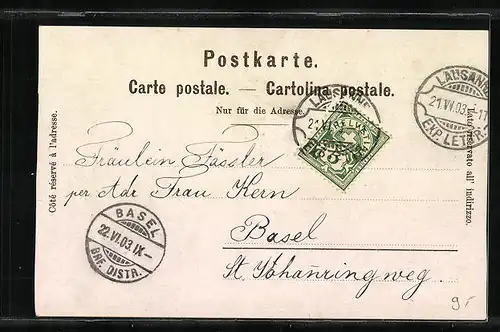 Postkarte.
Carte postale. — Cartolina postale.
Nur für die Adresse.
Côté réservé à l'adresse.
Lato riservato all' indirizzo.
LAUSANNE
EXP. LETTR.
LAUSANNE
21.VI.03.
EXP. LETTR.
Fräulein Fässler
per Adr Frau Kern
Basel
St. Johannringweg.
BASEL
22.VI.03.IX—
BRF. DISTR.